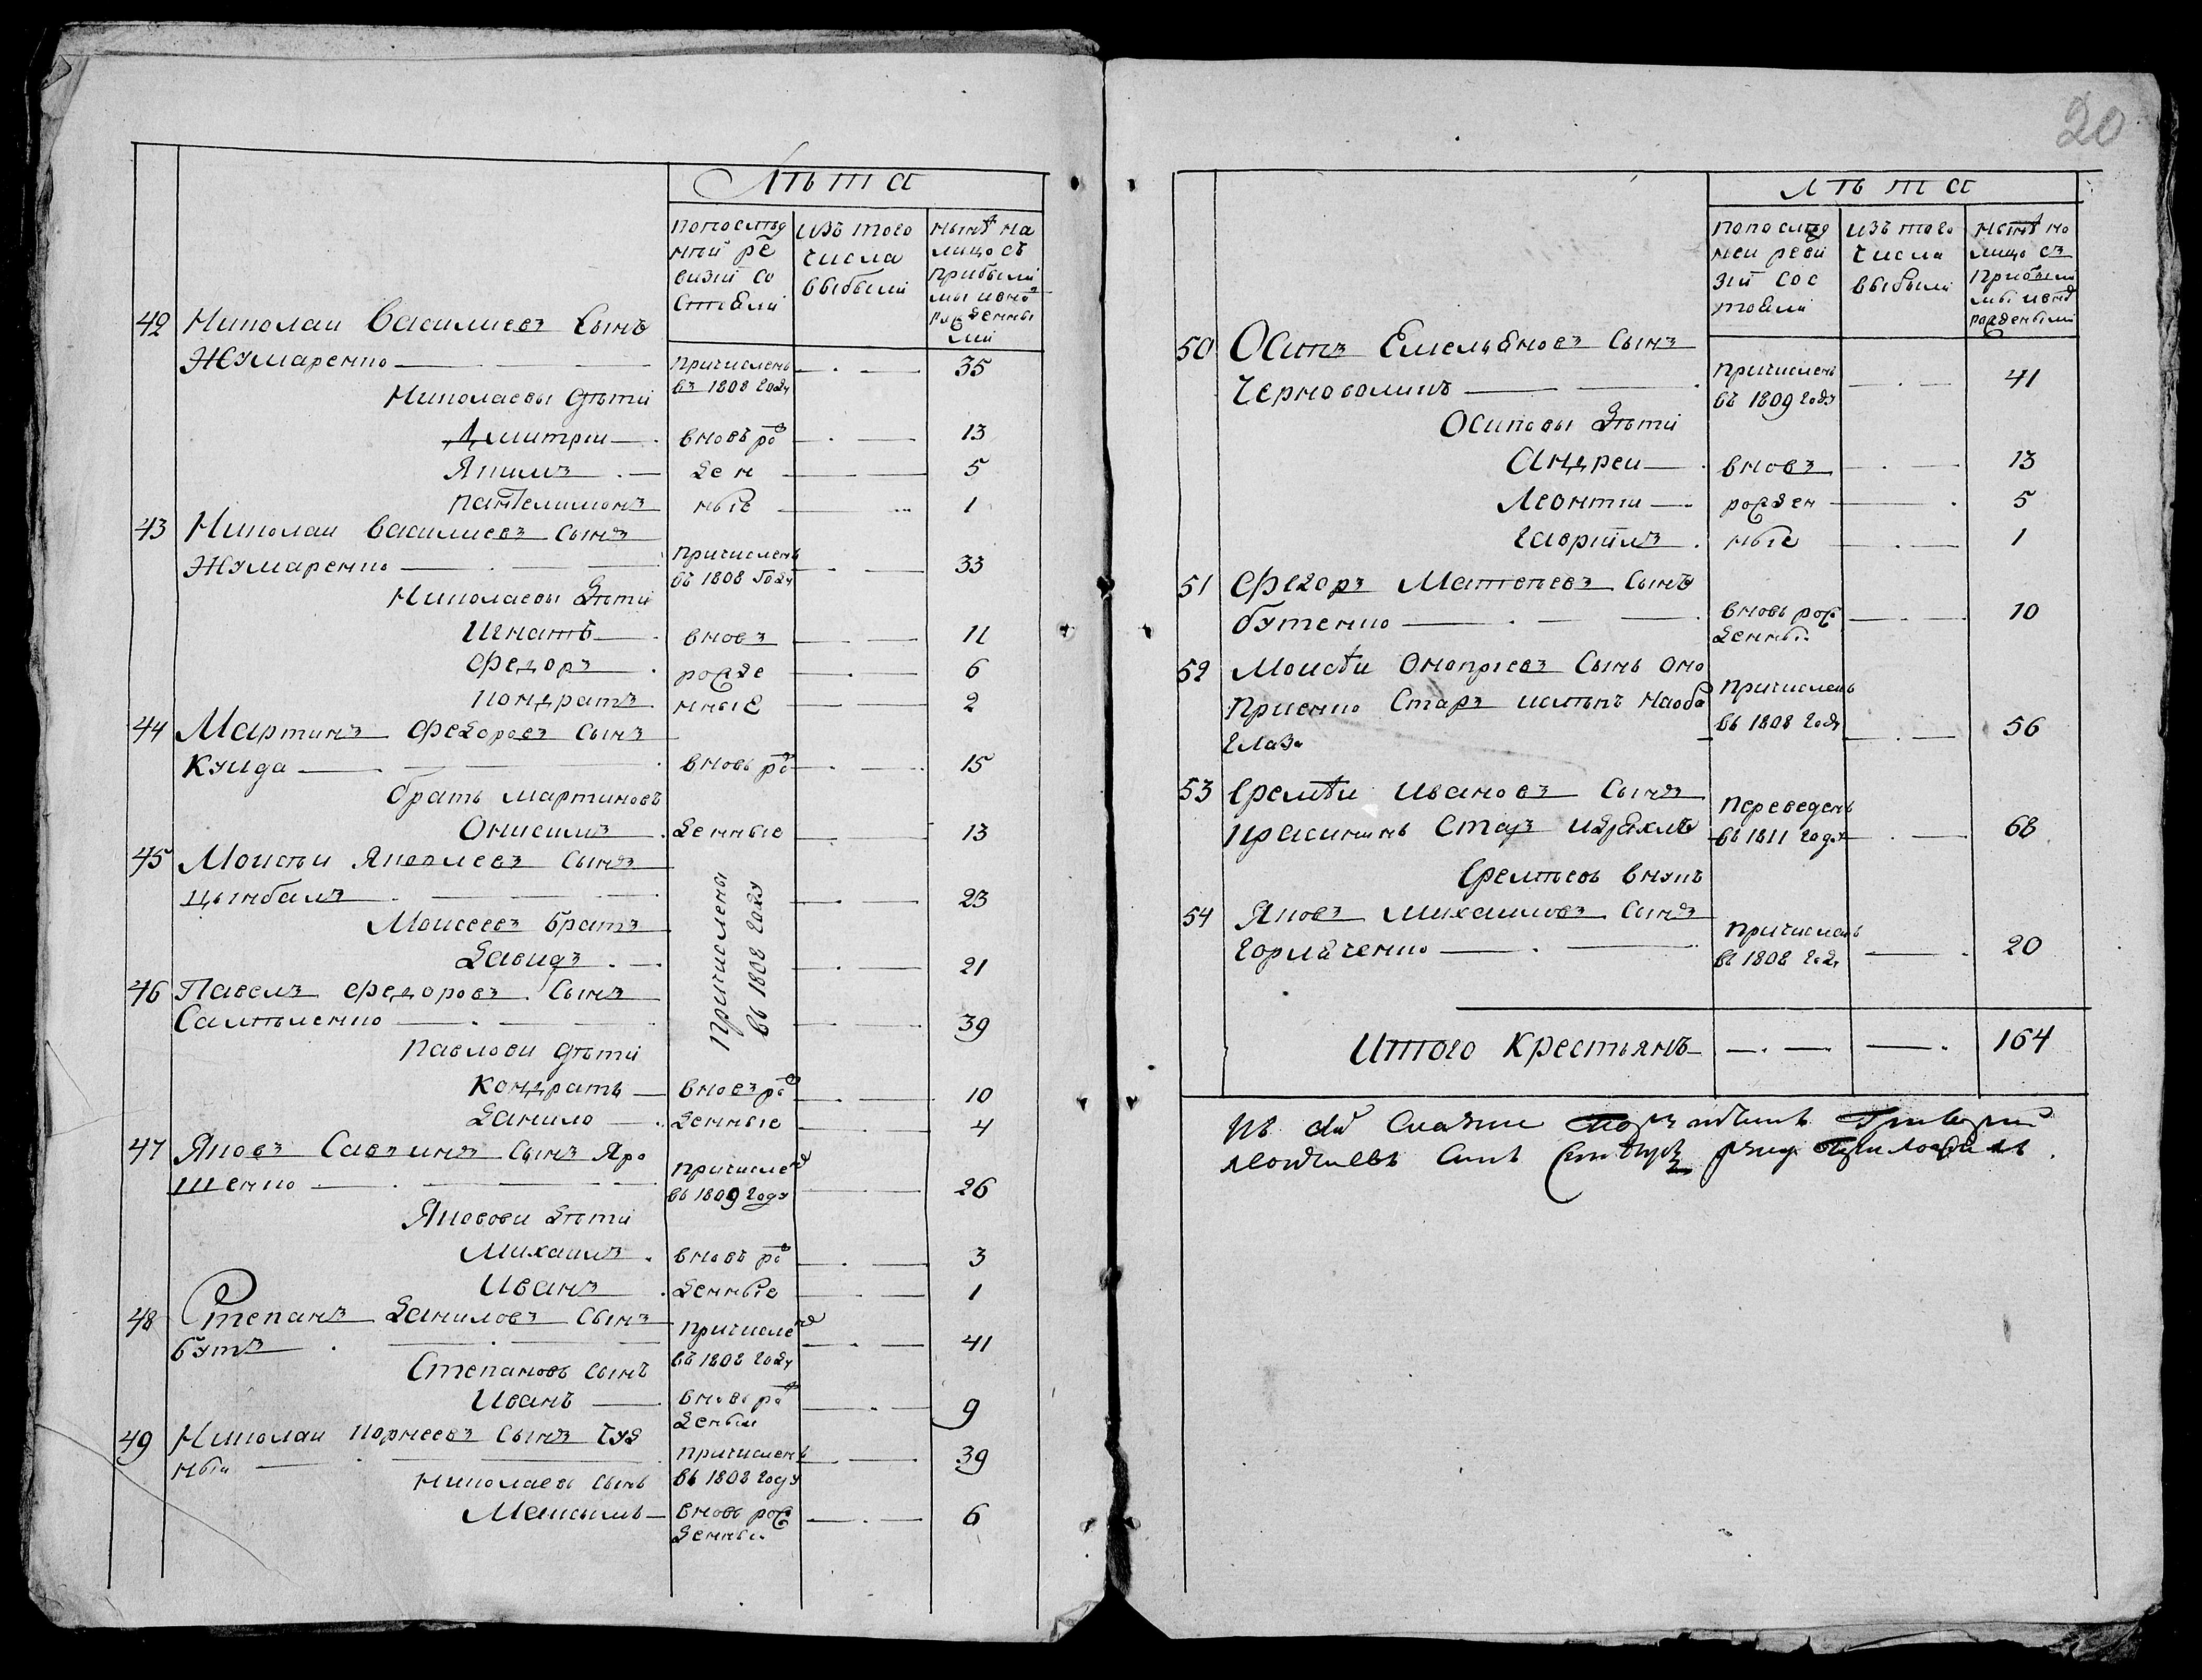 Лѣта
попослѣд
ней ре
визiи со
стояли
изъ того
числа
выбыли
нынѣ на
лицо съ
прибыли
ми и внов
рожденны
ми
42 Николаи Василиевъ Сынъ
Жумаренко — причисленъ
въ 1808 году 35
Николаевы дѣти
Дмитрiи — вновь ро 13
Якимъ — жден 5
пантелимонъ ные 1
43 Николаи Василиевъ Сынъ
Жумаренко — причисленъ
въ 1808 году 33
Николаевы дѣти
Игнатъ — вновъ 11
Федоръ рожде 6
кондратъ нные 2
44 Мартинъ Федоровъ Сынъ
Куцда — вновь ро 15
братъ мартиновъ
Онисимъ жденные 13
45 Моисѣи Яковлевъ Сынъ
цымбалъ 23
Моисеевъ братъ
Давидъ 21
причислены
въ 1808 году
46 Павелъ Федоровъ Сынъ
Самѣленко 39
Павлови дѣти
Кондратъ — вновъ ро 10
Данило жденные 4
47 Яковъ Саввинъ Сынъ Яро
шенко — причислен
въ 1809 году 26
Якововы дѣти
Михаилъ вновъ ро 3
Иванъ жденные 1
48 Степанъ Даниловъ Сынъ
бутъ причислен
въ 1808 году 41
Степановъ сынъ
Иванъ — вновь ро
жденыи 9
49 Николаи Корнеевъ Сынъ Чуд
ныи причисленъ
въ 1808 году 39
Николаевъ сынъ
Максимъ — вновь рож
денныи 6
20
Лѣта
попослѣд
неи реви
зiи сос
тояли
изъ того
числа
выбыли
нынѣ на
лицо съ
прибыли
ми и внов
рождеными
50 Осипъ Емельяновъ Сынъ
Черноволикъ — причисленъ
въ 1809 году 41
Осиповы дѣти
Андреи — вновъ 13
Леонтiи — рожден 5
гаврiилъ ные 1
51 Федоръ Матвѣевъ Сынъ
бутенко — вновь рож
денныи 10
52 Моисѣи Оноприевъ Сынъ оно
приенко Старъ ислѣпъ наоба
глаза
причисленъ
въ 1808 году 56
53 Еремѣи Ивановъ Сынъ
красикинъ Старъ идряхлъ
переведенъ
въ 1811 году 68
Еремѣевъ внукъ
54 Яковъ Михаиловъ Сынъ
горлаченко — причисленъ
въ 1808 году 20
Итого Крестьянъ — 164
Къ сей Сказки
руку Приложилъ.